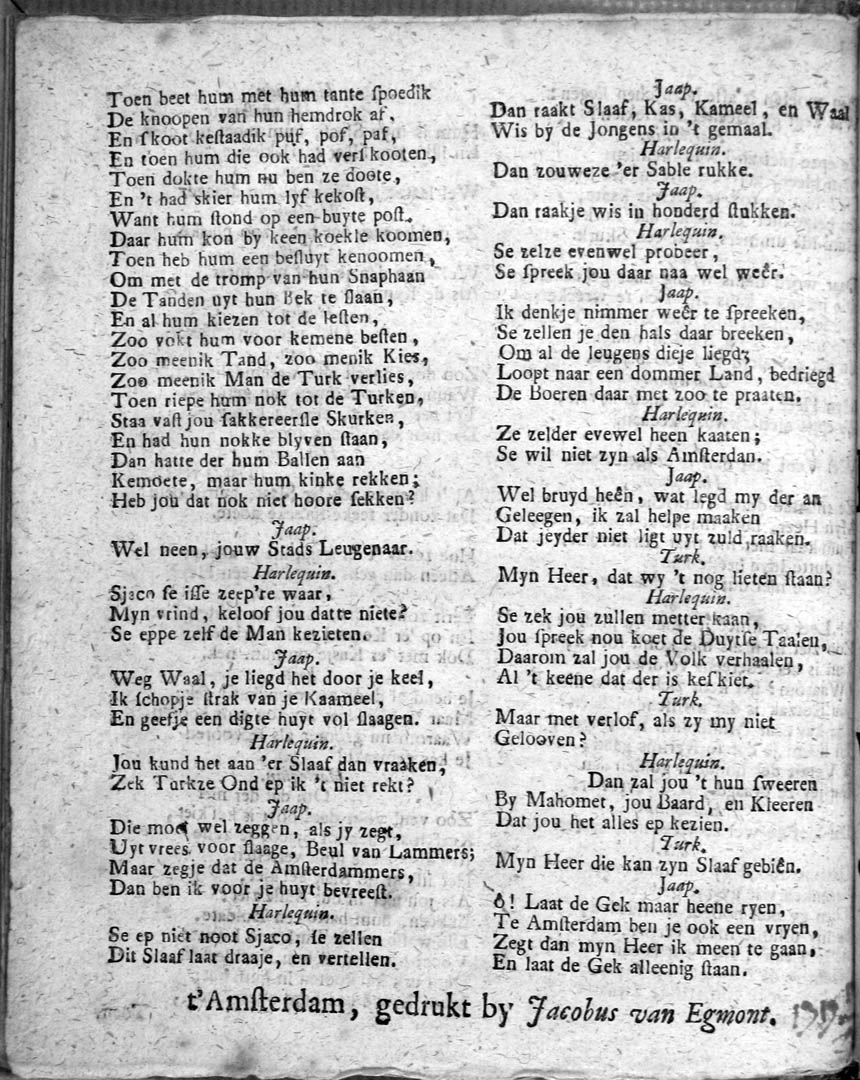 Toen beet hum met hum tante ſpoedik
De knoopen van hun hemdrok af,
En ſkoot keſtaadik puf, pof, paf,
En toen hum die ook had verſkooten,
Toen dokte hum nu ben ze doote,
En 't had skier hum lyf kekoſt,
Want hum ſtond op een buyte poſt.
Daar hum kon by keen koekle koomen,
Toen heb hum een beſluyt kenoomen,
Om met de tromp van hun Snaphaan
De Tanden uyt hun Bek te ſlaan,
En al hum kiezen tot de leſten,
Zoo vokt hum voor kemene beſten,
Zoo meenik Tand, zoo menik Kies,
Zoo meenik Man de Turk verlies,
Toen riepe hum nok tot de Turken,
Staa vaſt jou ſakkereerſle Skurken,
En had hun nokke blyven ſtaan,
Dan hatte der hum Ballen aan
Kemoete, maar hum kinke rekken;
Heb jou dat nok niet hoore ſekken?
Jaap.
Wel neen, jouw Stads Leugenaar.
Harlequin.
Sjaco ſe iſſe zeep're waar,
Myn vrind, keloof jou datte niete?
Se eppe zelf de Man kezieten.
Jaap.
Weg Waal, je liegd het door je keel,
Ik ſchopje ſtrak van je Kaameel,
En geefje een digte huyt vol ſlaagen.
Harlequin.
Jou kund het aan 'er Slaaf dan vraaken,
Zek Turkze Ond ep ik 't niet rekt?
Jaap.
Die moet wel zeggen, als jy zegt,
Uyt vrees voor ſlaage, Beul van Lammers;
Maar zegje dat de Amſterdammers,
Dan ben ik voor je huyt bevreeſt.
Harlequin.
Se ep niet noot Sjaco, ſe zellen
Dit Slaaf laat draaje, en vertellen.
Jaap.
Dan raakt Slaaf, Kas, Kameel, en Waal
Wis by de Jongens in 't gemaal.
Harlequin.
Dan zouweze 'er Sable rukke.
Jaap.
Dan raakje wis in honderd ſtukken.
Harlequin.
Se zelze evenwel probeer,
Se ſpreek jou daar naa wel weêr.
Jaap.
Ik denkje nimmer weêr te ſpreeken,
Se zellen je den hals daar breeken,
Om al de leugens dieje liegd;
Loopt naar een dommer Land, bedriegd
De Boeren daar met zoo te praaten.
Harlequin.
Ze zelder evewel heen kaaten;
Se wil niet zyn als Amſterdan.
Jaap.
Wel bruyd heên, wat legd my der an
Geleegen, ik zal helpe maaken
Dat jeyder niet ligt uyt zuld raaken.
Turk.
Myn Heer, dat wy 't nog lieten ſtaan?
Harlequin.
Se zek jou zullen metter kaan,
Jou ſpreek nou koet de Duytſe Taalen,
Daarom zal jou de Volk verhaalen,
Al 't keene dat der is keſkiet.
Turk.
Maar met verlof, als zy my niet
Gelooven?
Harlequin.
Dan zal jou 't hun ſweeren
By Mahomet, jou Baard, en Kleeren
Dat jou het alles ep kezien.
Turk.
Myn Heer die kan zyn Slaaf gebiên.
Jaap.
ô! Laat de Gek maar heene ryen,
Te Amſterdam ben je ook een vryen,
Zegt dan myn Heer ik meen te gaan,
En laat de Gek alleenig ſtaan.
t'Amſterdam, gedrukt by Jacobus van Egmont.